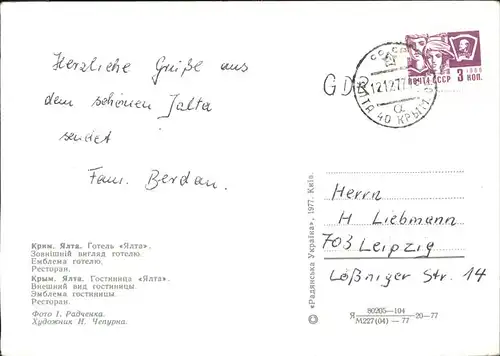 Herzliche Grüße aus
dem schönen Jalta
sendet
Fam. Berdan.
GDR
12127719
ЯЛТА 40 КРЫМ.
а
ПОЧТА СССР
1966
3 КОП.
Herrn
H Liebmann
703 Leipzig
Lößniger Str. 14
Крим. Ялта. Готель «Ялта».
Зовнішній вигляд готелю.
Емблема готелю.
Ресторан.
Крым. Ялта. Гостиница «Ялта».
Внешний вид гостиницы.
Эмблема гостиницы.
Ресторан.
Фото І. Радченка.
Художник Н. Чепурна.
© «Радянська Україна», 1977. Київ.
Я 80205—104 / М227(04)—77 29—77